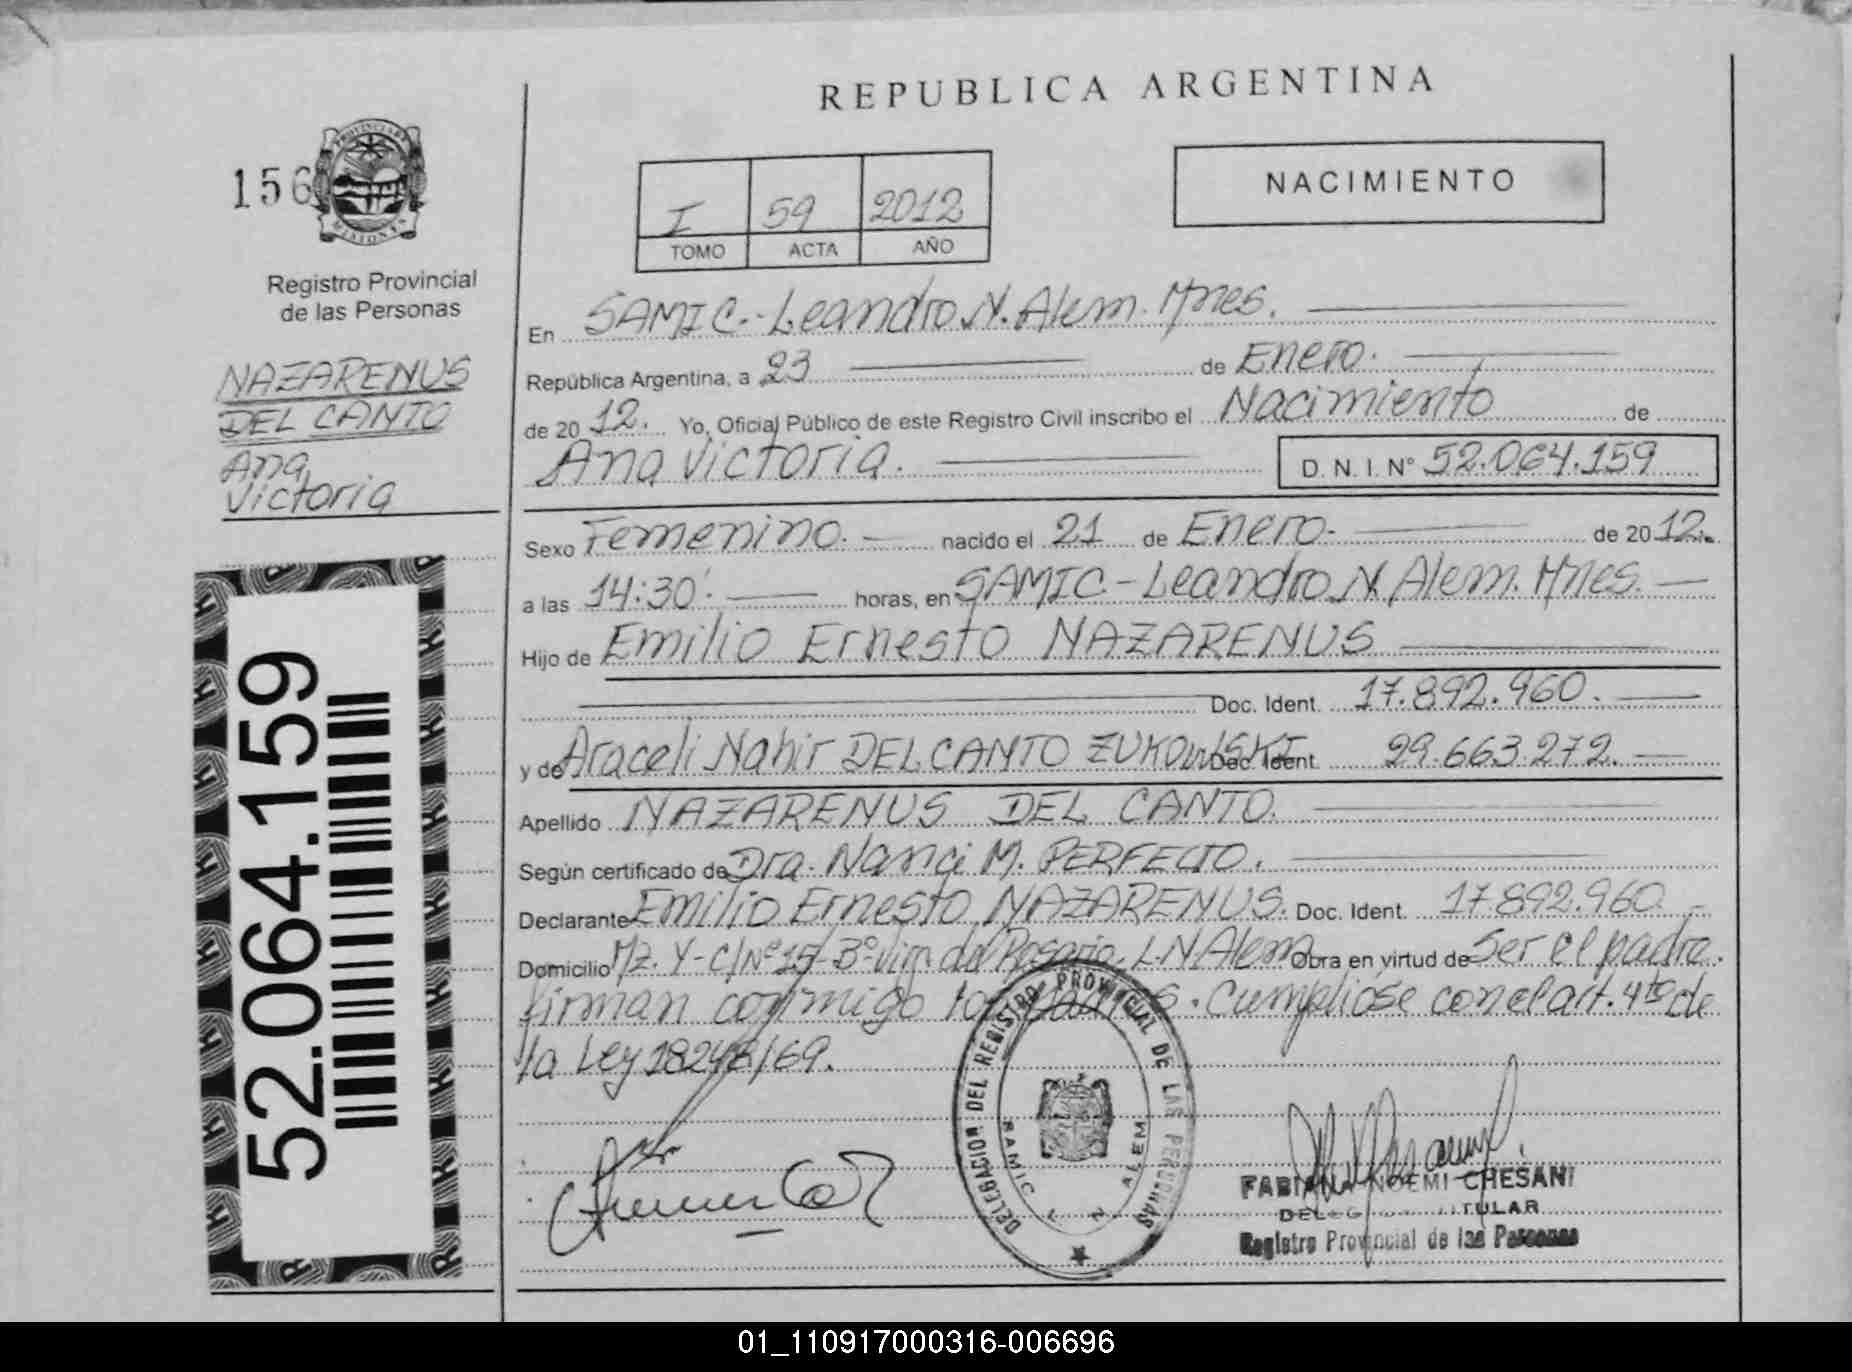 REPUBLICA ARGENTINA
156
PROVINCIA DE
MISIONES
Registro Provincial
de las Personas
NAZARENUS
DEL CANTO
Ana
Victoria
52.064.159
I 59 2012
TOMO ACTA AÑO
NACIMIENTO
En SAMIC.-Leandro N. Alem. Mnes.
República Argentina, a 23 de Enero.
de 2012. Yo, Oficial Público de este Registro Civil inscribo el Nacimiento de
Ana Victoria. D. N. I. N° 52.064.159
Sexo Femenino. nacido el 21 de Enero. de 2012.
a las 14:30'. horas, en SAMIC-Leandro N. Alem. Mnes.
Hijo de Emilio Ernesto NAZARENUS
Doc. Ident. 17.892.960.
y de Araceli Nahir DEL CANTO ZUKOWSKI Doc. Ident. 29.663.272.
Apellido NAZARENUS DEL CANTO.
Según certificado de Dra. Nanci M. PERFECTO.
Declarante Emilio Ernesto NAZARENUS. Doc. Ident. 17892.960
Domicilio Mz. Y-C/N°15-B°Virg. del Rosario. L.N Alem Obra en virtud de Ser el padre.
firman conmigo los padres. Cumplióse con el art. 4to de
la Ley 18248/69.
DELEGACION DEL REGISTRO PROVINCIAL DE LAS PERSONAS
SAMIC L. N. ALEM
FABIANA NOEMI CHESANI
DELEGADA TITULAR
Registro Provincial de las Personas
01_110917000316-006696